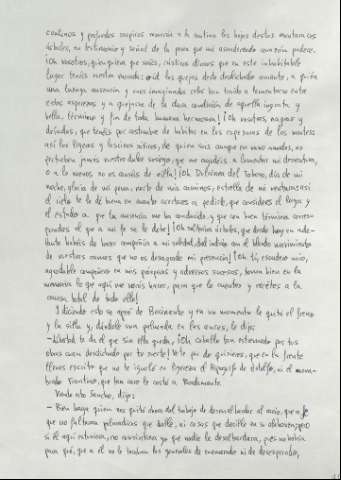 continos y profundos suspiros moverán a la contina las hojas destos montaraces
árboles, en testimonio y señal de la pena que mi asendereado corazón padece.
¡Oh vosotros, quienquiera que seáis, rústicos dioses que en este inhabitable
lugar tenéis vuestra morada: oíd las quejas deste desdichado amante, a quien
una luenga ausencia y unos imaginados celos han traído a lamentarse entre
estas asperezas y a quejarse de la dura condición de aquella ingrata y
bella, término y fin de toda humana hermosura! ¡Oh vosotras, napeas y
dríadas, que tenéis por costumbre de habitar en las espesuras de los montes:
así los ligeros y lascivos sátiros, de quien sois aunque en vano amadas, no
perturben jamás vuestro dulce sosiego, que me ayudéis a lamentar mi desventura,
o a lo menos no os canséis de oílla! ¡Oh Dulcinea del Toboso, día de mi
noche, gloria de mi pena, norte de mis caminos, estrella de mi ventura: así
el cielo te la dé buena en cuanto acertares a pedirle, que consideres el lugar y
el estado a que tu ausencia me ha conducido, y que con buen término corres-
pondas al que a mi fe se le debe! ¡Oh solitarios árboles, que desde hoy en ade-
lante habéis de hacer compañía a mi soledad: dad indicio con el blando movimiento
de vuestras ramas que no os desagrade mi presencia! ¡Oh tú, escudero mío,
agradable compañero en mis prósperos y adversos sucesos: toma bien en la
memoria lo que aquí me verás hacer, para que lo cuentes y recites a la
causa total de todo ello!
Y diciendo esto se apeó de Rocinante y en un momento le quitó el freno
y la silla y, dándole una palmada en las ancas, le dijo:
– Libertad te da el que sin ella queda, ¡oh caballo tan estremado por tus
obras cuan desdichado por tu suerte! Vete por do quisieres, que en la frente
llevas escrito que no te igualó en ligereza el Hipogrifo de Astolfo, ni el nom-
brado Frontino, que tan caro le costó a Bradamante.
Viendo esto Sancho, dijo:
– Bien haya quien nos quitó ahora del trabajo de desenalbardar al rucio, que a fe
que no faltaran palmadicas que dalle, ni cosas que decille en su alabanza; pero
si él aquí estuviera, no consintiera yo que nadie le desalbardara, pues no había
para qué, que a él no le tocaban las generales de enamorado ni de desesperado,